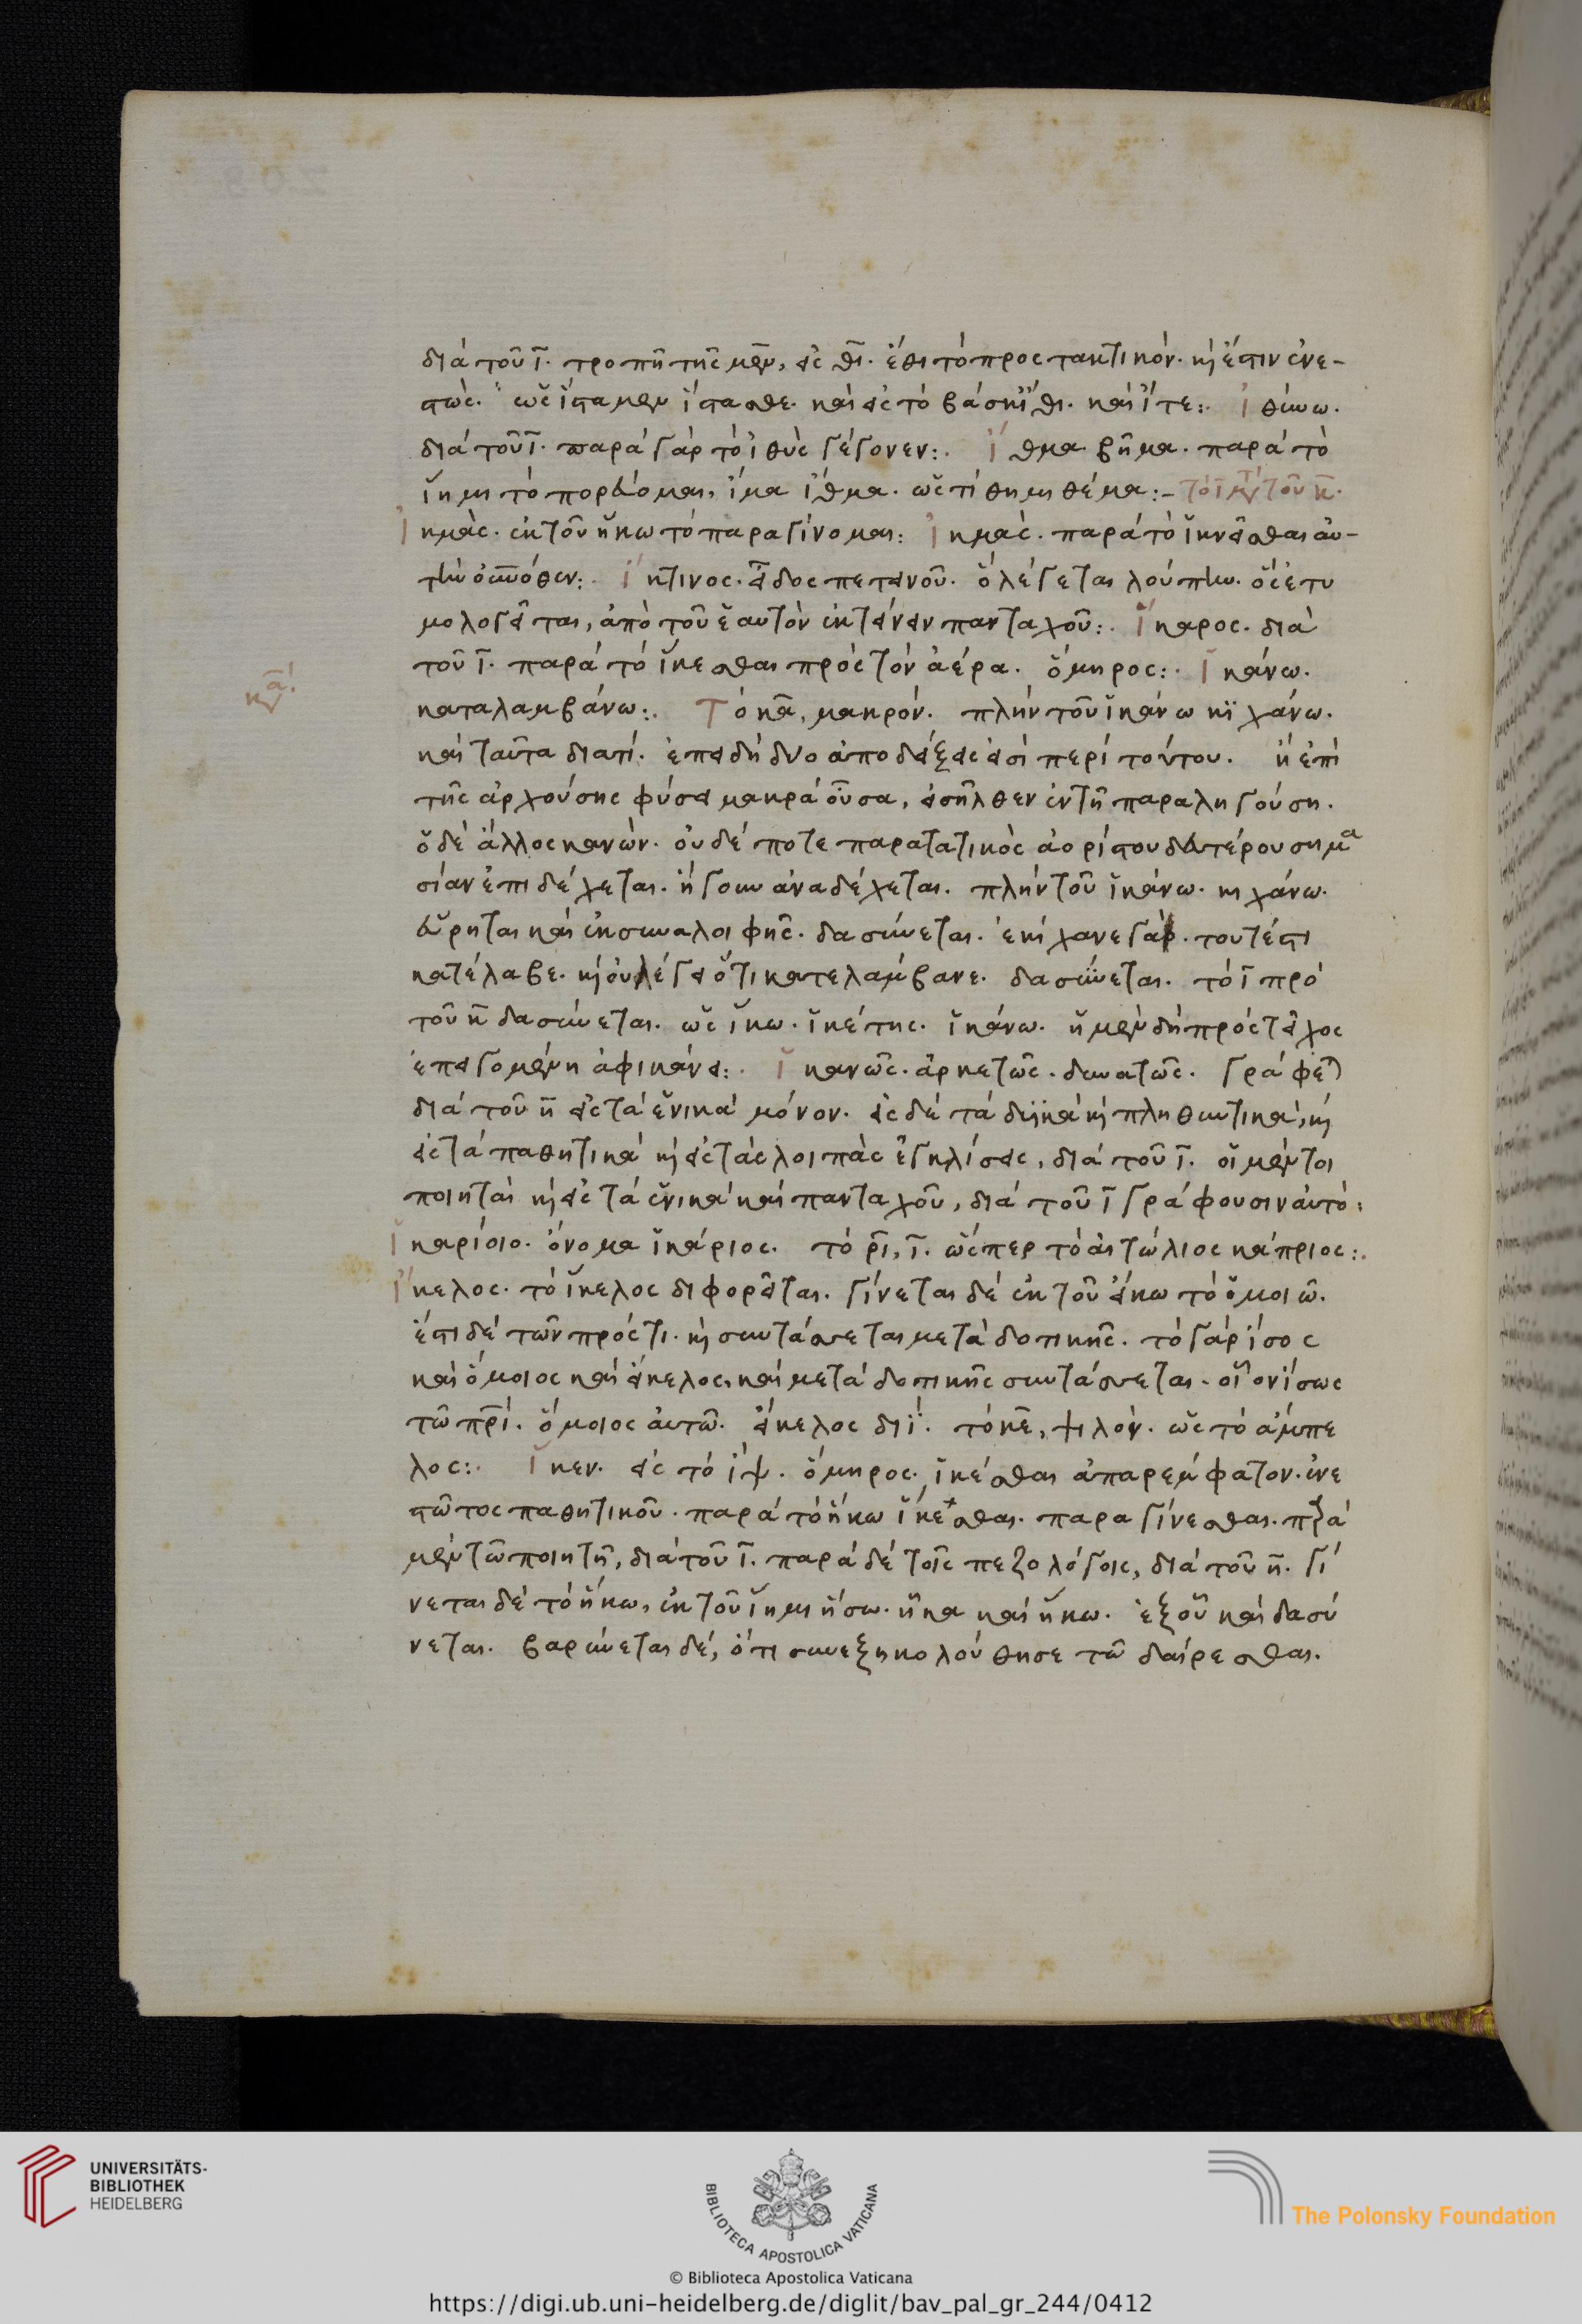 διὰ τοῦ ῑ. τροπῇ τῆς μεν, εἰς θι. ἔθι τὸ προστακτικόν. κὶ ἔστιν ἐνε-
στώς. ὡς ἵσταμεν ἵστασθε. καὶ εἰς τὸ βάσκ' ἴθι. καὶ ἴτε:. ἰθύνω.
διὰ τοῦ ῑ. παρὰ γὰρ τὸ ἰθὺς γέγονεν:. ἴθμα. βῆμα. παρὰ τὸ
ἵημι τὸ πορεύομαι, ἵμα ἴθμα. ὡς τίθημι θέμα:- τὸ ῑ μετὰ τοῦ κ̄.
ἰκμάς. ἐκ τοῦ ἥκω τὸ παραγίνομαι: ἰκμάς. παρὰ τὸ ἱκνεῖσθαι αὐ-
τὴν ὁπόθεν:. ἴκτινος. εἶδος πετεινοῦ. ὃ λέγεται λούπην. ὃς ἐτυ
μολογεῖται, ἀπὸ τοῦ ἑαυτὸν ἐκτείνειν πανταχοῦ:. ἴκαρος. διὰ
τοῦ ῑ. παρὰ τὸ ἵκεσθαι πρὸς τὸν ἀέρα. ὅμηρος:. ἱκάνω.
καταλαμβάνω:. Τὸ κα, μακρόν. πλὴν τοῦ ἱκάνω κιχάνω.
καὶ ταῦτα διατί. ἐπειδὴ δύο ἀποδείξεις εἰσὶ περὶ τούτου. ἡ ἐπὶ
τῆς ἀρχούσης φύσει μακρὰ οὖσα, εἰσῆλθεν ἐν τῇ παραληγούσῃ.
ὁ δὲ ἄλλος κανών. οὐδέποτε παρατατικὸς ἀορίστου δευτέρου σημα
σίαν ἐπιδέχεται. ἤγουν ἀναδέχεται. πλὴν τοῦ ἱκάνω. κιχάνω.
εὕρηται καὶ ἐκ συναλοιφῆς. δασύνεται. ἐκίχανε γὰρ. τουτέστι
κατέλαβε. κὶ οὐ λέγει ὅτι κατελάμβανε. δασύνεται. τὸ ῑ πρὸ
τοῦ κ̄ δασύνεται. ὡς ἵκω. ἱκέτης. ἱκάνω. ἡ μὲν δὴ πρὸς τεῖχος
ἐπειγομένη ἀφικάνει:. ἱκανῶς. ἀρκετῶς. δυνατῶς. γράφεται
διὰ τοῦ η̄ εἰς τὰ ἑνικὰ μόνον. εἰς δὲ τὰ δυϊκὰ κὶ πληθυντικά, κὶ
εἰς τὰ παθητικὰ κὶ εἰς τὰς λοιπὰς ἐγκλίσεις, διὰ τοῦ ῑ. οἱ μέντοι
ποιηταὶ κὶ εἰς τὰ ἑνικὰ καὶ πανταχοῦ, διὰ τοῦ ῑ γράφουσιν αὐτό:
ἱκαρίοιο. ὄνομα ἱκάριος. τὸ ρι, ῑ. ὥσπερ τὸ αἰτώλιος κάπριος:.
ἴκελος. τὸ ἵκελος διφορεῖται. γίνεται δὲ ἐκ τοῦ εἴκω τὸ ὁμοιῶ.
ἔστι δὲ τῶν πρός τι. κὶ συντάσσεται μετὰ δοτικῆς. τὸ γὰρ ἴσος
καὶ ὅμοιος καὶ εἴκελος, καὶ μετὰ δοτικῆς συντάσσεται. οἷον ἴσως
τῷ πρί. ὅμοιος αὐτῷ. εἴκελος διί. τὸ κε, ψιλόν. ὡς τὸ ἄμπε
λος:. ἷκεν. εἰς τὸ ἴψ. ὅμηρος. ἱκέσθαι ἀπαρέμφατον. ἐνε
στῶτος παθητικοῦ. παρὰ τὸ ἥκω ἵκεσθαι. παραγίνεσθαι. παρὰ
μὲν τῷ ποιητῇ, διὰ τοῦ ῑ. παρὰ δὲ τοῖς πεζολόγοις, διὰ τοῦ η̄. γί
νεται δὲ τὸ ἥκω, ἐκ τοῦ ἵημι ἥσω. ἧκα καὶ ἥκω. ἐξ οὗ καὶ δασύ
νεται. βαρύνεται δέ, ὅτι συνεξηκολούθησε τῷ δαίρεσθαι.